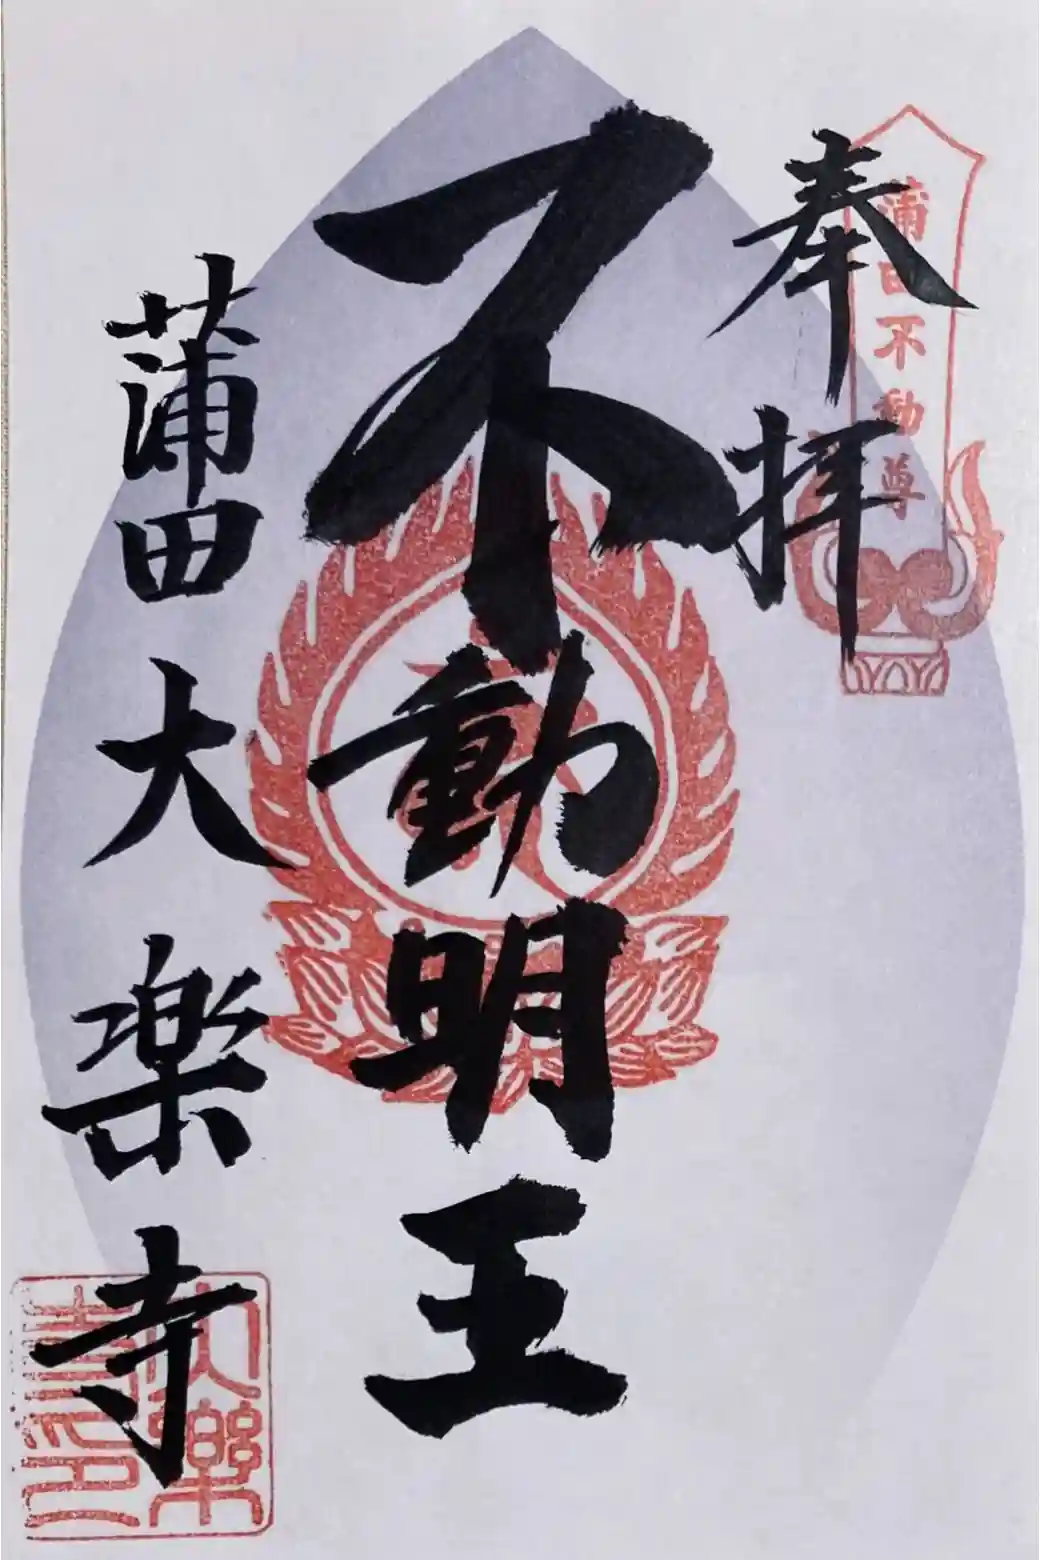 奉拝
蒲田不動尊
不動明王
蒲田大楽寺
大樂寺印